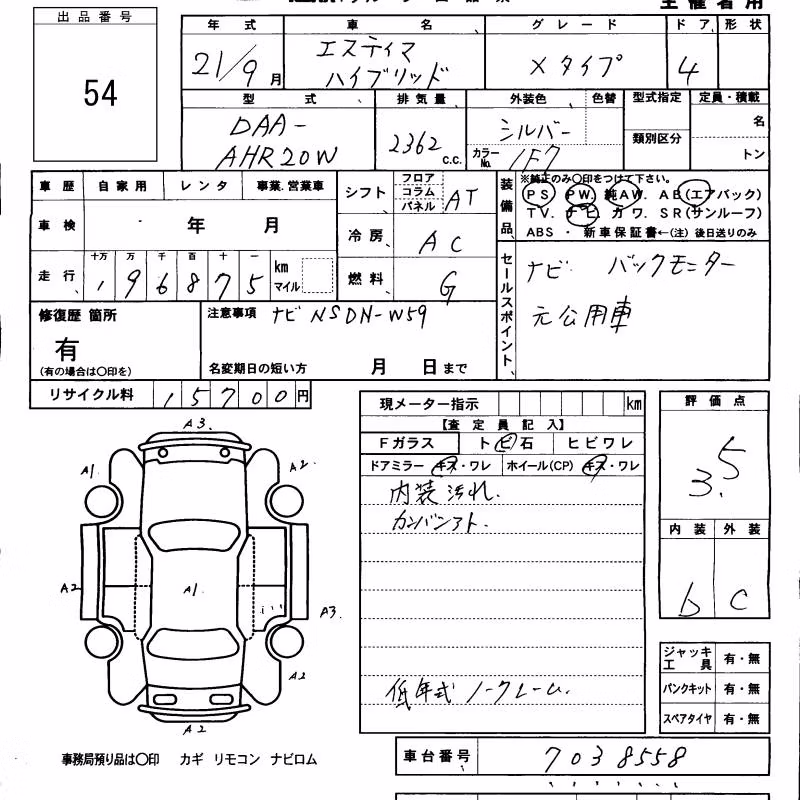 出品番号
54
年式 車名 グレード ドア 形状
21/9月 エスティマ ハイブリッド Xタイプ 4
型式 排気量 外装色 色替 型式指定 定員・積載
DAA-AHR20W 2362 c.c. シルバー カラーNo. 1F7 類別区分 名 トン
車歴 自家用 レンタ 事業.営業車
車検 年 月
走行 十万 万 千 百 十 一 km マイル
196875
シフト フロア コラム パネル AT
冷房 AC
燃料 G
装備品
※純正のみ〇印をつけて下さい。
PS PW. 純AW. AB(エアバック)
TV. ナビ. カワ. SR(サンルーフ)
ABS ・ 新車保証書←(注) 後日送りのみ
セールスポイント
ナビ バックモニター
元公用車
修復歴 箇所
有
(有の場合は〇印を)
注意事項 ナビ NSDN-W59
名変期日の短い方 月 日まで
リサイクル料 15700円
現メーター指示 km
【査定員記入】
Fガラス トビ石 ヒビワレ
ドアミラー キズ・ワレ ホイール(CP) キズ・ワレ
内装汚れ.
カンバンアト.
低年式 ノークレーム.
評価点
3.5
内装 外装
b C
ジャッキ工具 有・無
パンクキット 有・無
スペアタイヤ 有・無
A3.
A1. A2
A2 A1. A3.
A2
A2
事務局預り品は〇印 カギ リモコン ナビロム
車台番号 7038558